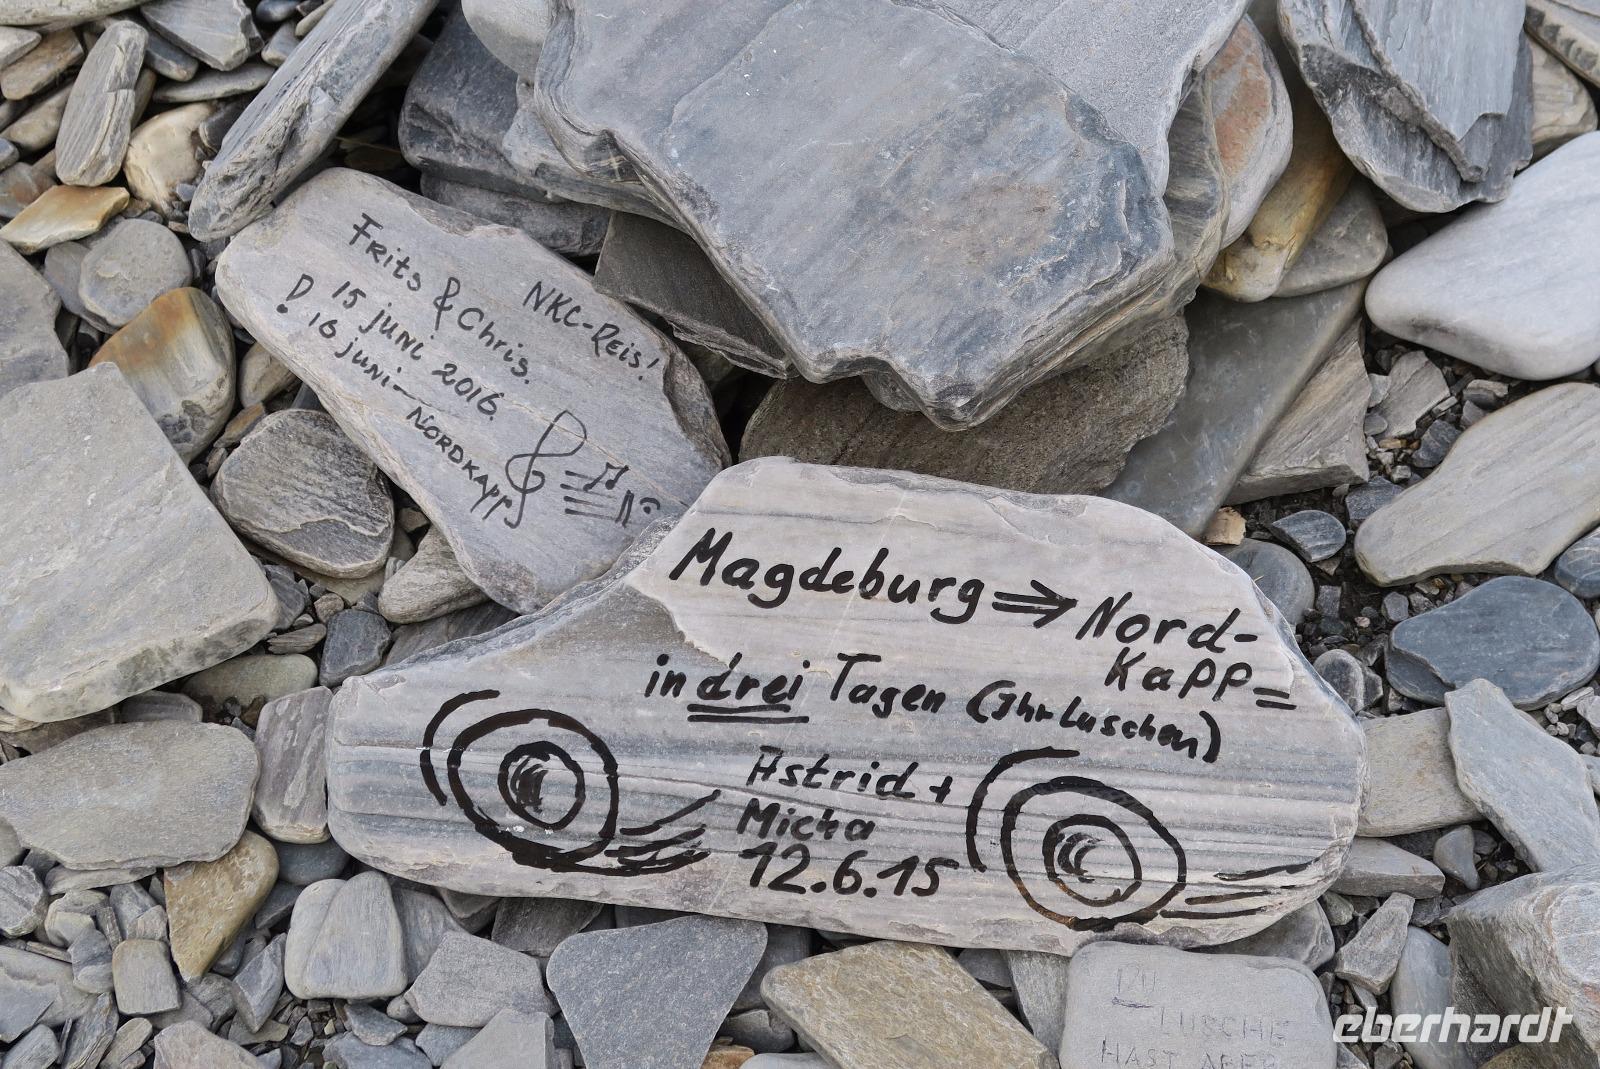 Frits & Chris.
NKC-Reis!
15 juni 2016.
16 juni-
NORDKAPP
Magdeburg ⇒ Nord-
Kapp
in drei Tagen (Ihr Luschen)
Astrid +
Micha
12.6.15
DU
LUSCHE
HAST ABER
eberhardt